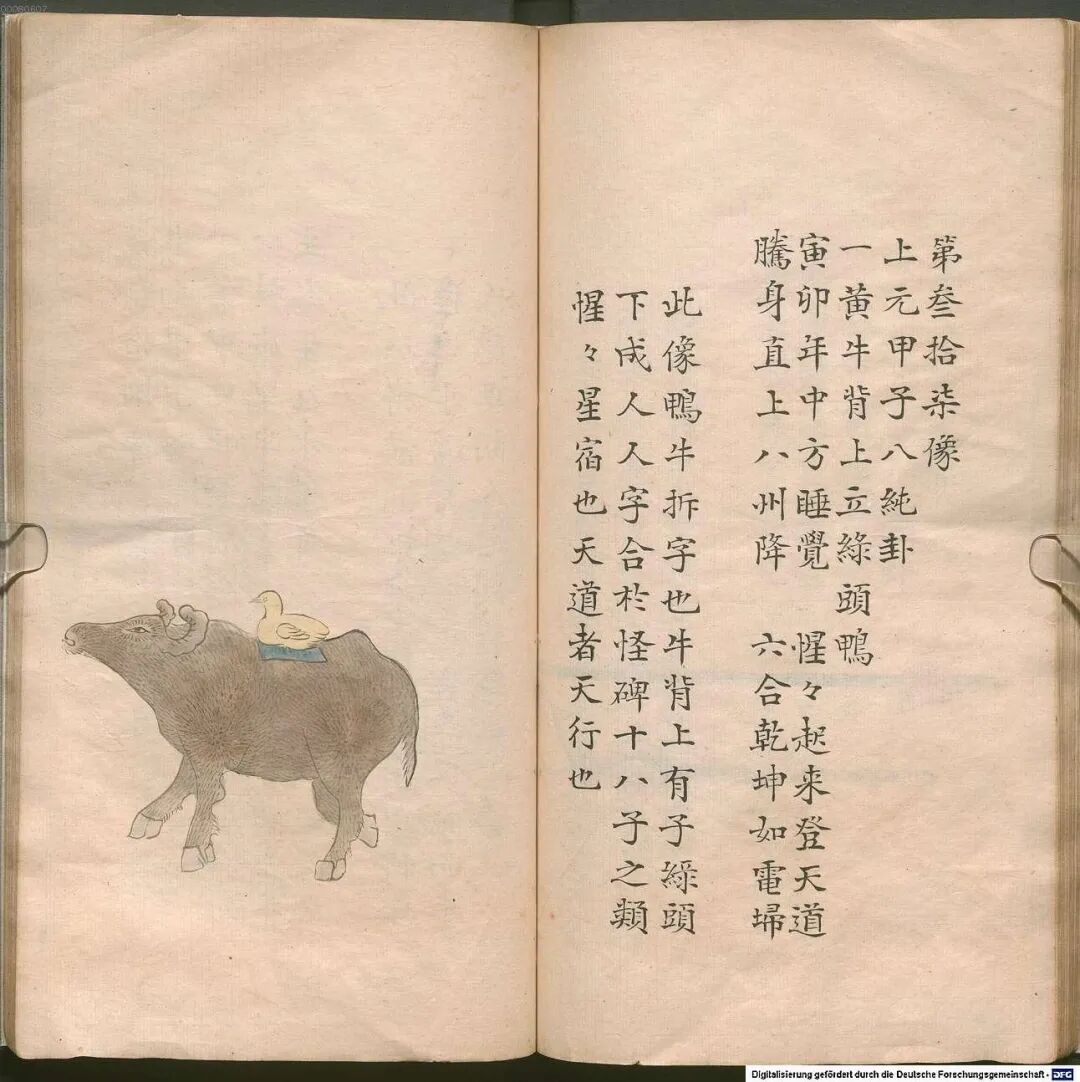 第叁拾柒像
上元甲子八純卦
一黃牛背上立綠頭鴨
寅卯年中方睡覺 惺々起来登天道
騰身直上八州降 六合乾坤如電埽
此像鴨牛拆字也牛背上有子綠頭
下成人人字合於怪碑十八子之類
惺々星宿也天道者天行也
00080607
Digitalisierung gefördert durch die Deutsche Forschungsgemeinschaft - DFG